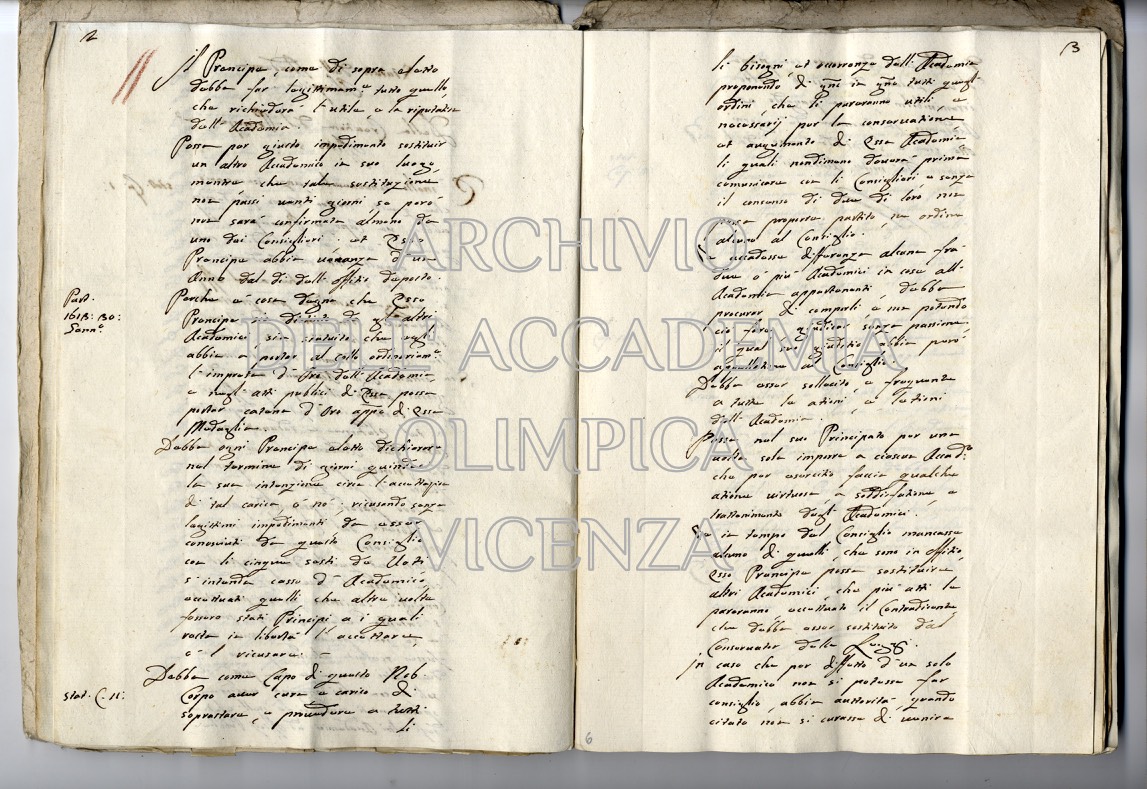 2
Il Prencipe, come di sopra eletto
debba far legittimam.e tutto quello,
che richiederà l'utile, e la riputatione
dell'Academia.
Possa per giusto impedimento sostituir
un altro Academico in suo luogo
mentre che tale sostituzione
non passi venti giorni se però
non sarà confirmata almeno da
uno dei Consiglieri. et Esso
Prencipe abbia vacanza d'un
Anno dal dì dell'offitio deposto.
Part.
1618: 30:
Genn.o
Perchè è cosa degna che Esso
Prencipe sia
Academici sia statuito che egli
abbia a portar al collo ordinariam.e
l'impresa d'Oro dell'Academia,
e negl'atti publici di Essa possa
portar catena d'Oro appo di Essa
Medaglia.
Debba ogni Prencipe eletto dichiarare
nel termine di giorni quindeci
la sua intenzione circa l'accettazione
di tal carica, ò nò; ricusando senza
legittimi impedimenti da esser
conosciuti da questo Consiglio
con li cinque sesti de Voti
s'intenda casso d'Academico
eccettuati quelli che altre volte
fossero stati Principi a i quali
resta in libertà l'accettare,
o' l ricusare.
Stat. C. 11:
Debba come Capo di questo Nob.
Corpo aver cura e carico di
soprastare, e provedere a tutti
li
3
li bisogni, et occorrenze dell'Academia
proponendo di q.ñi in q.ño tutti quegl'
ordini, che li pareranno utili, e
necessarij per la conservatione
et augumento di Essa Academia
li quali nondimeno doverà prima
comunicare con li Consiglieri e senza
il consenso di due di loro non
possa proponer partito, ne ordine
alcuno al Consiglio.
Se accadesse differenza alcuna fra
due ò più Academici in cose all'
Academia appartenenti debba
procurar di comporli e non potendo
ciò fare giudicar senza passione
il qual suo giuditio abbia però
appellatione al Consiglio.
Debba esser sollecito, e frequente
a tutte le ationi, e letioni
dell'Academia
Possa nel suo Principato per una
volta sola imporre a ciascun Acad.o
che per esercitio faccia qualche
atione virtuosa, a soddisfatione e
trattenimento degl'Academici.
Se in tempo del Consiglio mancasse
alcuno di quelli, che sono in offitio
Esso Prencipe possa sostituire
altri Academici, che più atti le
pareranno eccettuato il Contradicente
che debba esser sostituito dal
Conservator delle Leggi.
In caso che per diffetto d'un solo
Academico non si potesse far
consiglio, abbia auttorità, quando
citato non si curasse di venire
6
ARCHIVIO
DELL'ACCADEMIA
OLIMPICA
VICENZA